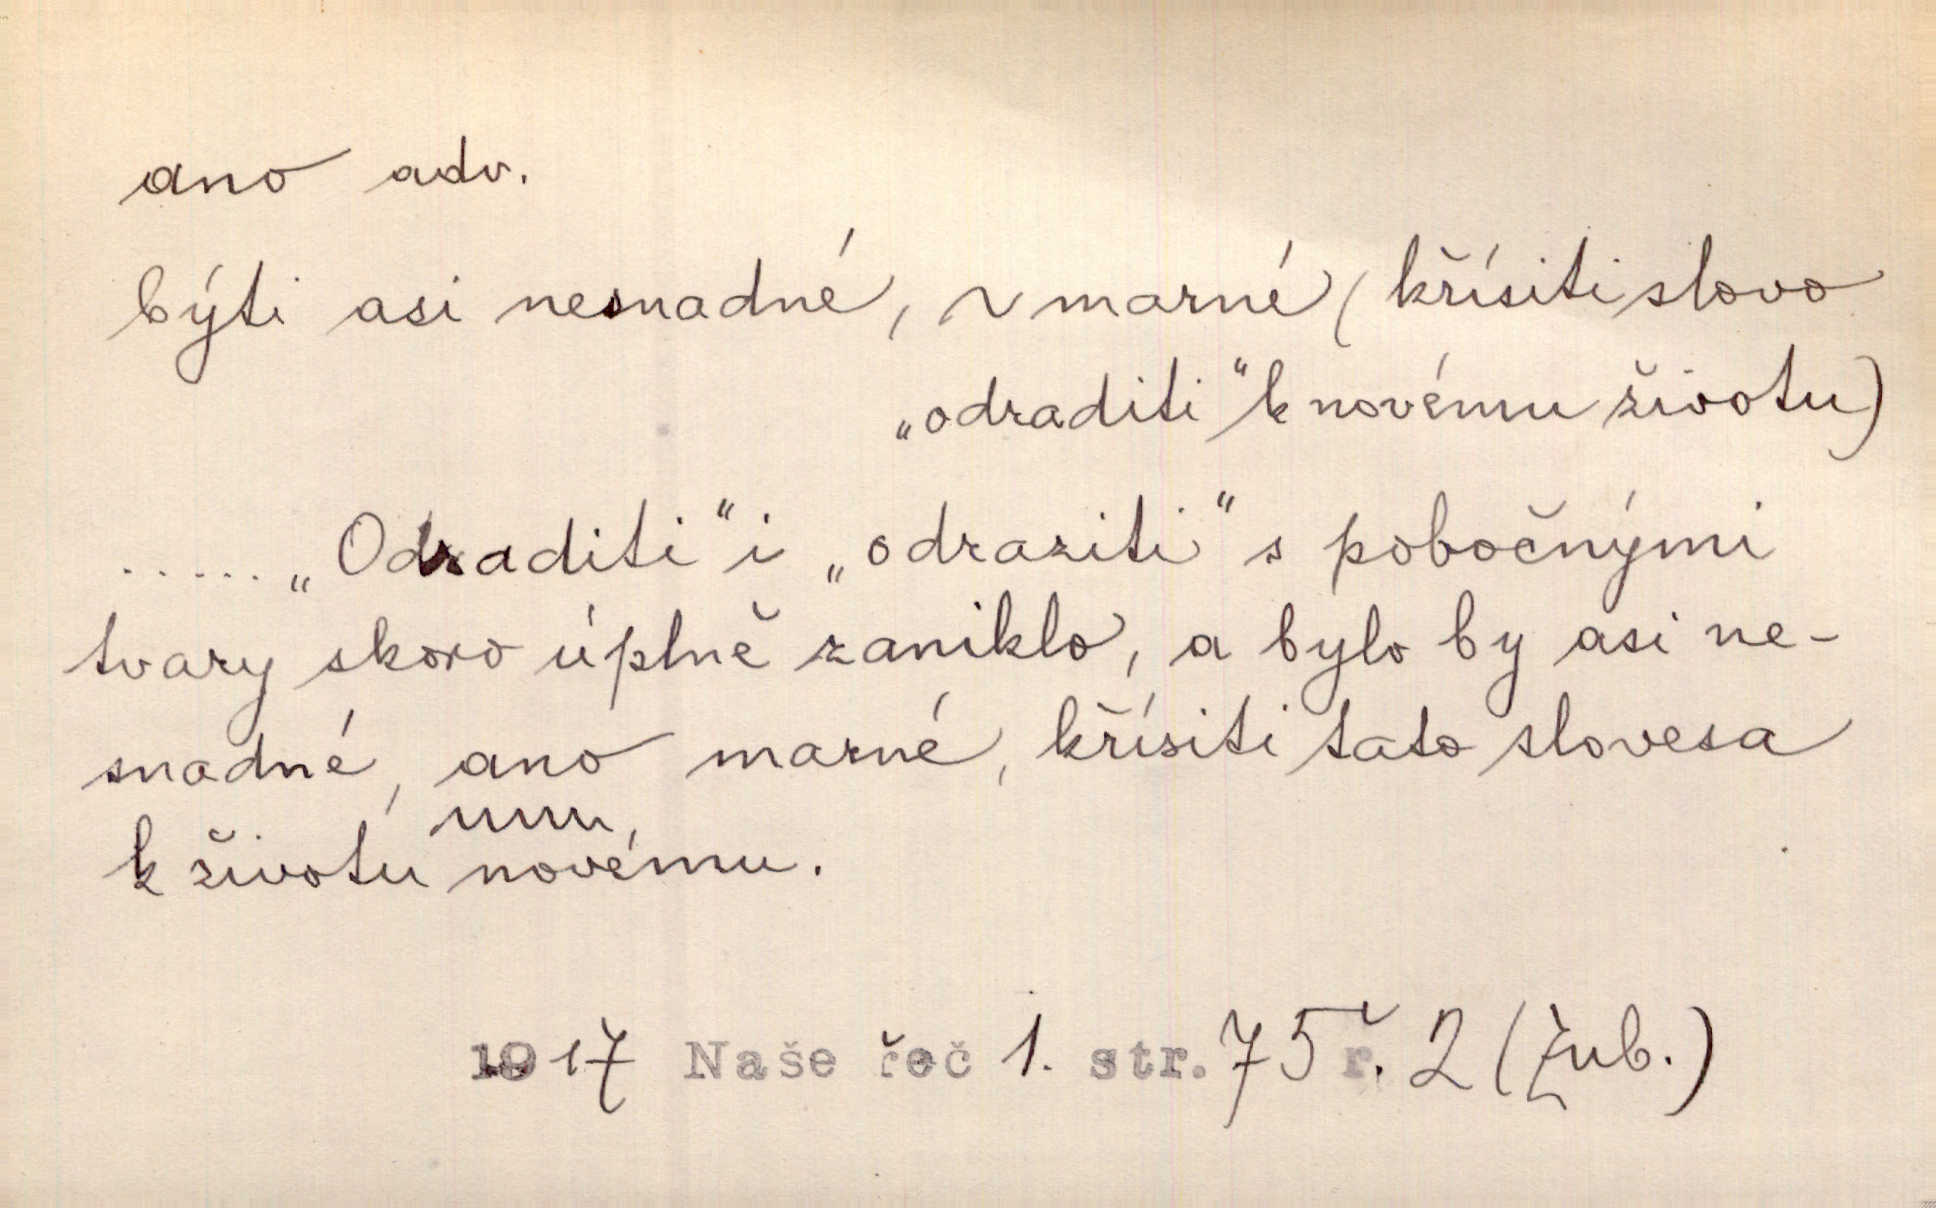 ano adv.
býti asi nesnadné, ~ marné (křísiti slovo
„odraditi“ k novému životu)
...... „Odraditi“ i „odraziti“ s pobočnými
tvary skoro úplně zaniklo, a bylo by asi ne-
snadné, ano marné, křísiti tato slovesa
k životu novému.
1917 Naše řeč 1. str. 75 ř. 2 (Zub.)